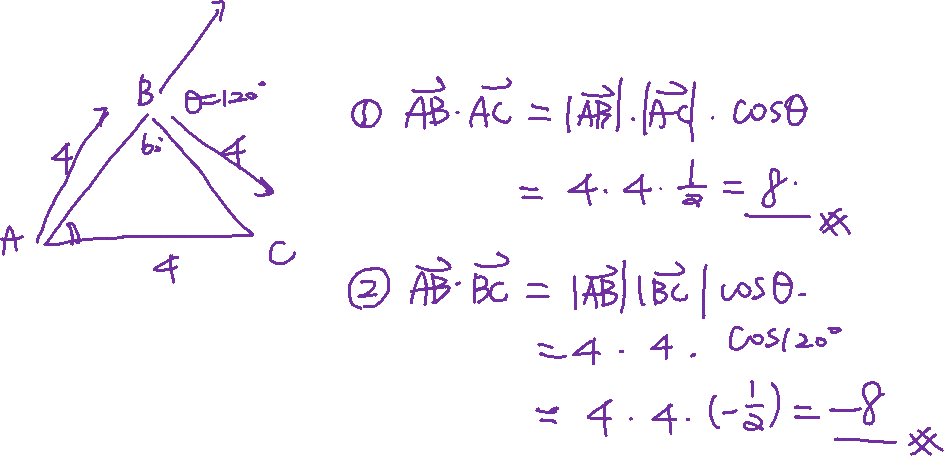 B
θ=120°
4
60°
4
A
4
C
① AB·AC = |AB|·|AC|·cosθ
= 4·4·1/2 = 8.
② AB·BC = |AB||BC|cosθ.
=4·4.cos120°
= 4·4·(-1/2) = -8